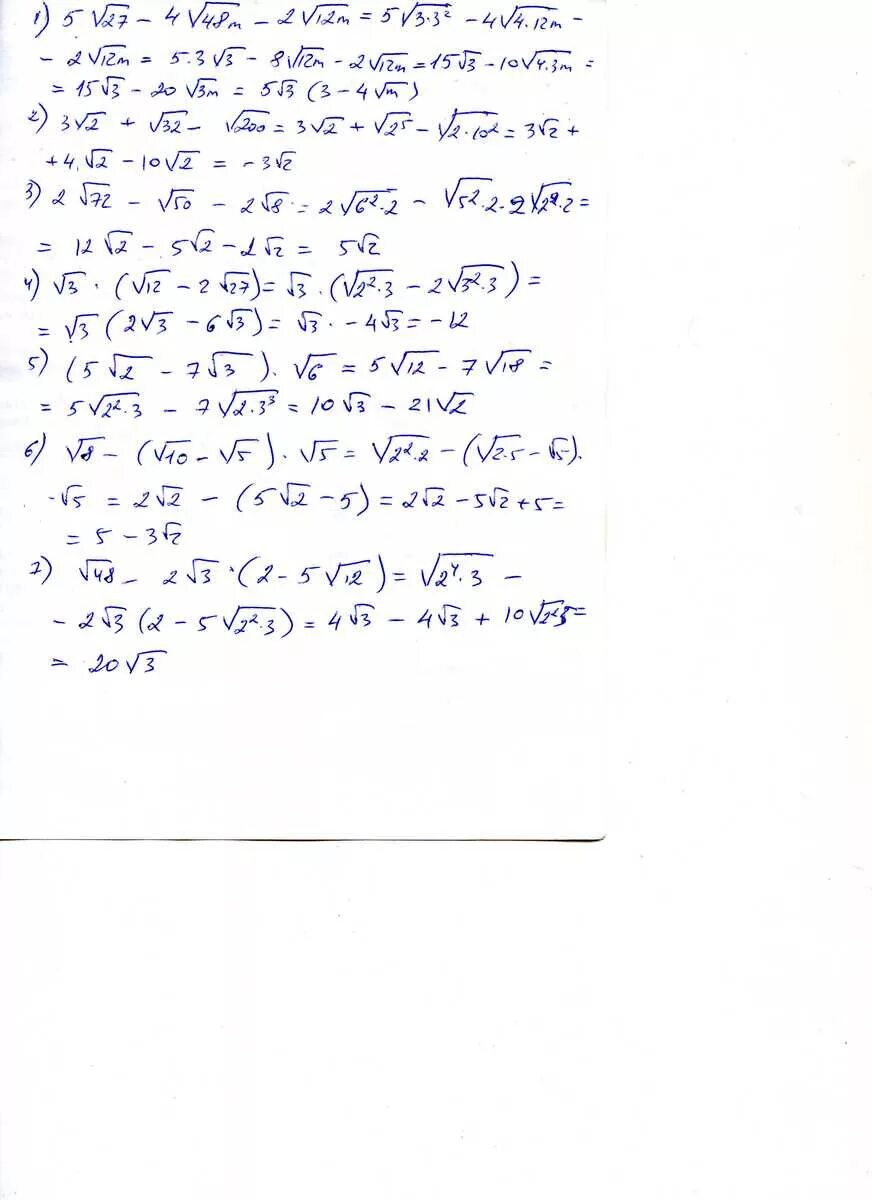 1) 5√27 - 4√48m - 2√12m = 5√3·3² - 4√4·12m -
- 2√12m = 5·3√3 - 8√12m - 2√12m = 15√3 - 10√4·3m =
= 15√3 - 20√3m = 5√3 (3 - 4√m)
2) 3√2 + √32 - √200 = 3√2 + √2⁵ - √2·10² = 3√2 +
+ 4√2 - 10√2 = -3√2
3) 2√72 - √50 - 2√8 = 2√6²·2 - √5²·2 - 2√2²·2 =
= 12√2 - 5√2 - 2√2 = 5√2
4) √3 · (√12 - 2√27) = √3 · (√2²·3 - 2√3²·3) =
= √3 (2√3 - 6√3) = √3 · -4√3 = -12
5) (5√2 - 7√3) · √6 = 5√12 - 7√18 =
= 5√2²·3 - 7√2·3³ = 10√3 - 21√2
6) √8 - (√10 - √5) · √5 = √2²·2 - (√2·5 - √5) ·
· √5 = 2√2 - (5√2 - 5) = 2√2 - 5√2 + 5 =
= 5 - 3√2
7) √48 - 2√3 · (2 - 5√12) = √2⁴·3 -
- 2√3 (2 - 5√2²·3) = 4√3 - 4√3 + 10√2²·3 =
= 20√3